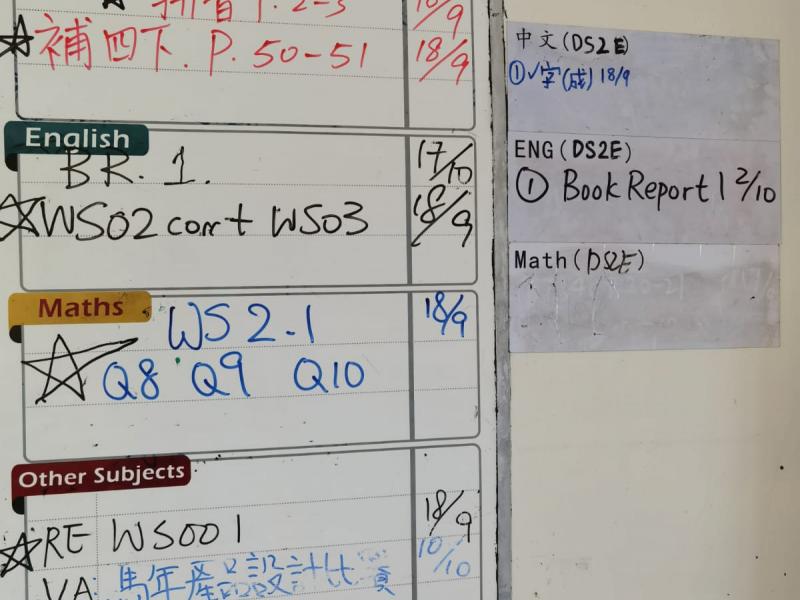 拼音 P. 2-3 18/9
補四下. P. 50-51 18/9
English
BR. 1. 17/10
WS02 con't WS03 18/9
Maths
WS 2.1 18/9
Q8 Q9 Q10
Other Subjects
RE WS001 18/9
VA 馬年產品設計比賽 10/10
中文(DS2E)
①√字(成) 18/9
ENG(DS2E)
① Book Report 1 2/10
Math(DS2E)